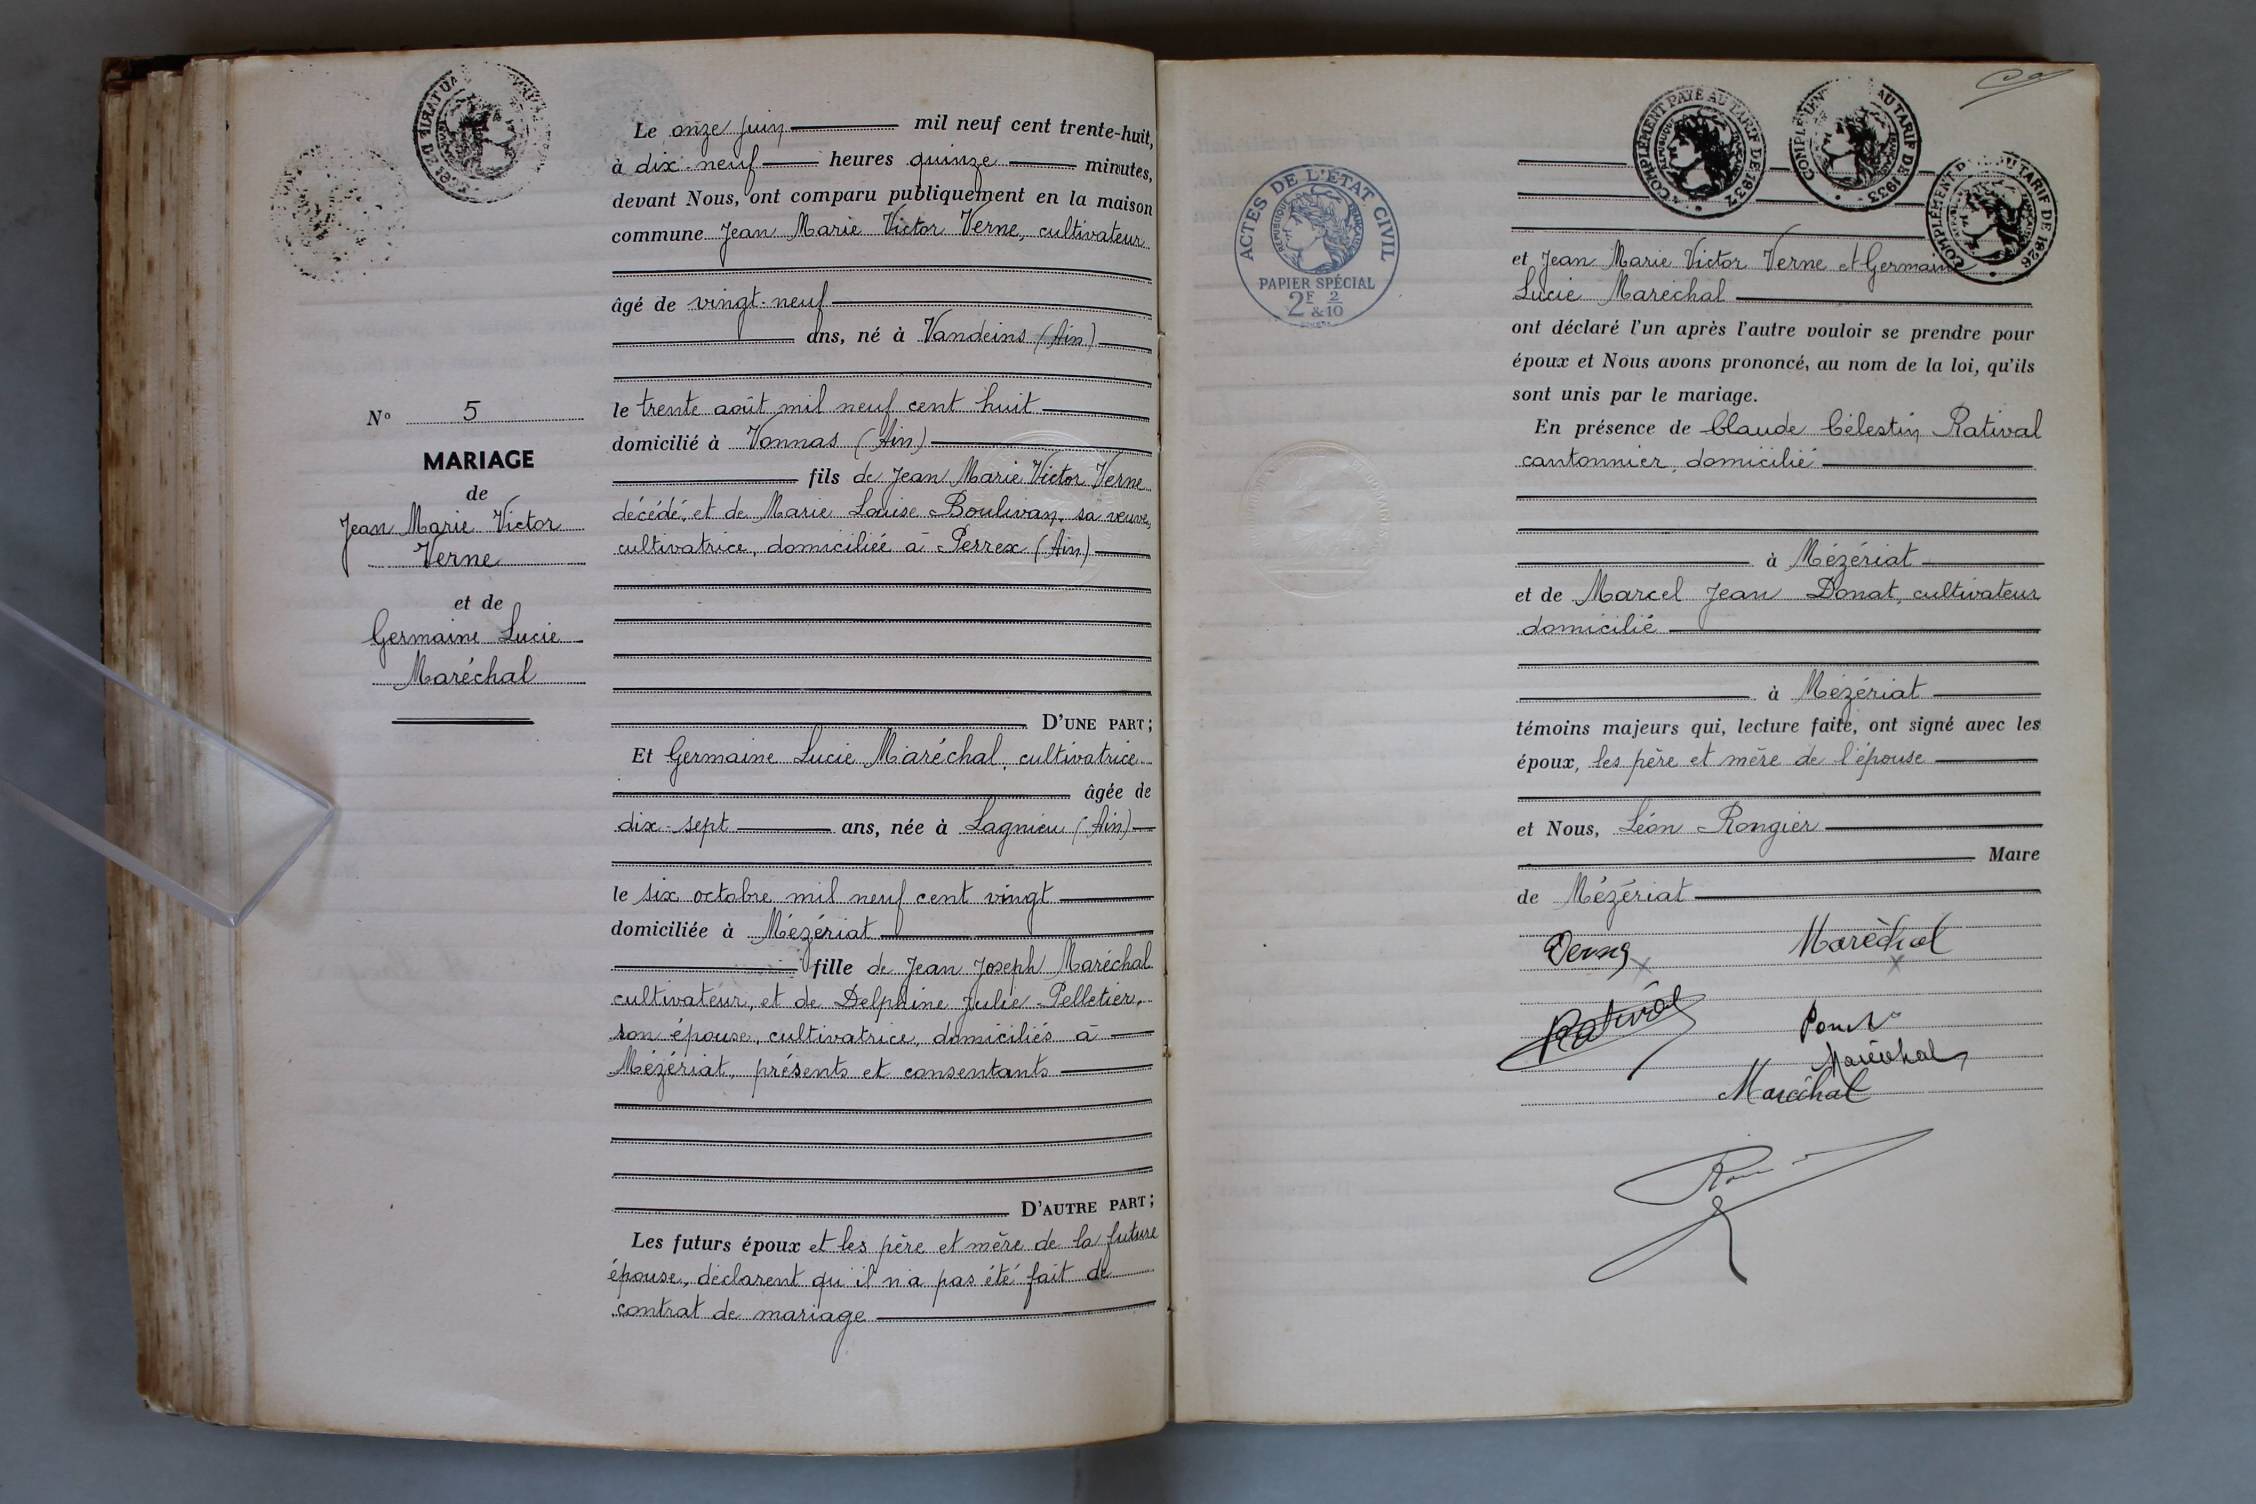 Le onze juin mil neuf cent trente-huit,
à dix neuf heures quinze minutes,
devant Nous, ont comparu publiquement en la maison
commune Jean Marie Victor Verne, cultivateur
âgé de vingt-neuf
ans, né à Vandeins (Ain)
le trente août mil neuf cent huit
domicilié à Vonnas (Ain)
fils de Jean Marie Victor Verne
décédé, et de Marie Louise Boulivan, sa veuve,
cultivatrice, domiciliée à Perrex (Ain)
D'UNE PART;
Et Germaine Lucie Maréchal, cultivatrice
âgée de
dix-sept ans, née à Lagnieu (Ain)
le six octobre mil neuf cent vingt
domiciliée à Mézériat
fille de Jean Joseph Maréchal
cultivateur, et de Delphine Julie Pelletier,
son épouse, cultivatrice, domiciliés à
Mézériat, présents et consentants
D'AUTRE PART;
Les futurs époux et les père et mère de la future
épouse, déclarent qu'il n'a pas été fait de
contrat de mariage
N° 5
MARIAGE
de
Jean Marie Victor
Verne
et de
Germaine Lucie
Maréchal
ACTES DE L'ETAT CIVIL
RÉPUBLIQUE FRANÇAISE
PAPIER SPÉCIAL
2F 2
&10
COMPLÉMENT PAYÉ AU TARIF DE 1937
COMPLÉMENT AU TARIF DE 1933
COMPLÉMENT P U TARIF DE 1926
et Jean Marie Victor Verne et Germaine
Lucie Maréchal
ont déclaré l'un après l'autre vouloir se prendre pour
époux et Nous avons prononcé, au nom de la loi, qu'ils
sont unis par le mariage.
En présence de Claude Célestin Ratival
cantonnier, domicilié
à Mézériat
et de Marcel Jean Donat, cultivateur
domicilié
à Mézériat
témoins majeurs qui, lecture faite, ont signé avec les
époux, les père et mère de l'épouse
et Nous, Léon Rongier
Maire
de Mézériat
Verne Maréchal
Ratival
Maréchal
Maréchal